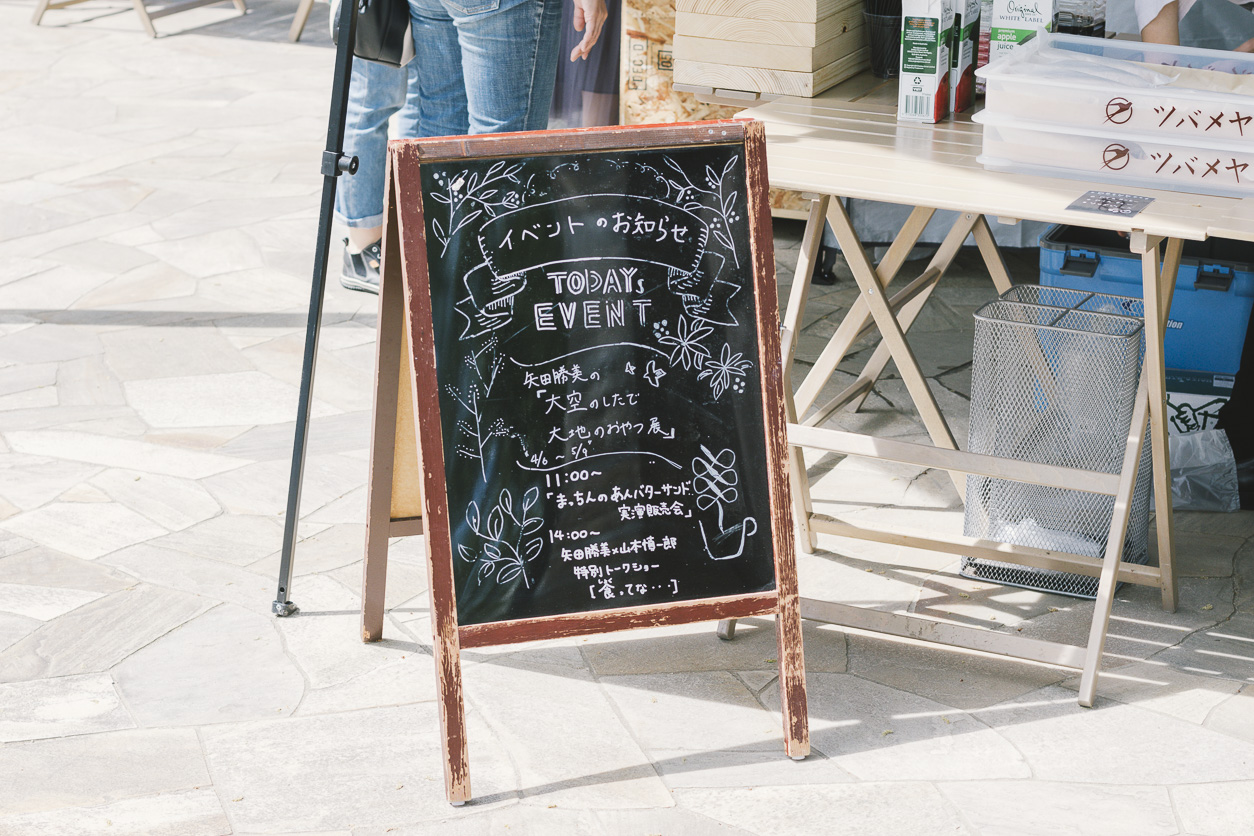 イベントのお知らせ
TODAYs
EVENT
矢田勝美の
「大空のしたで
大地のおやつ展」
4/6 ~ 5/9
11:00~
「まっちんのあんバターサンド
実演販売会」
14:00~
矢田勝美×山本慎一郎
特別トークショー
Original
WHITE LABEL
apple
juice
ツバメヤ
ツバメヤ